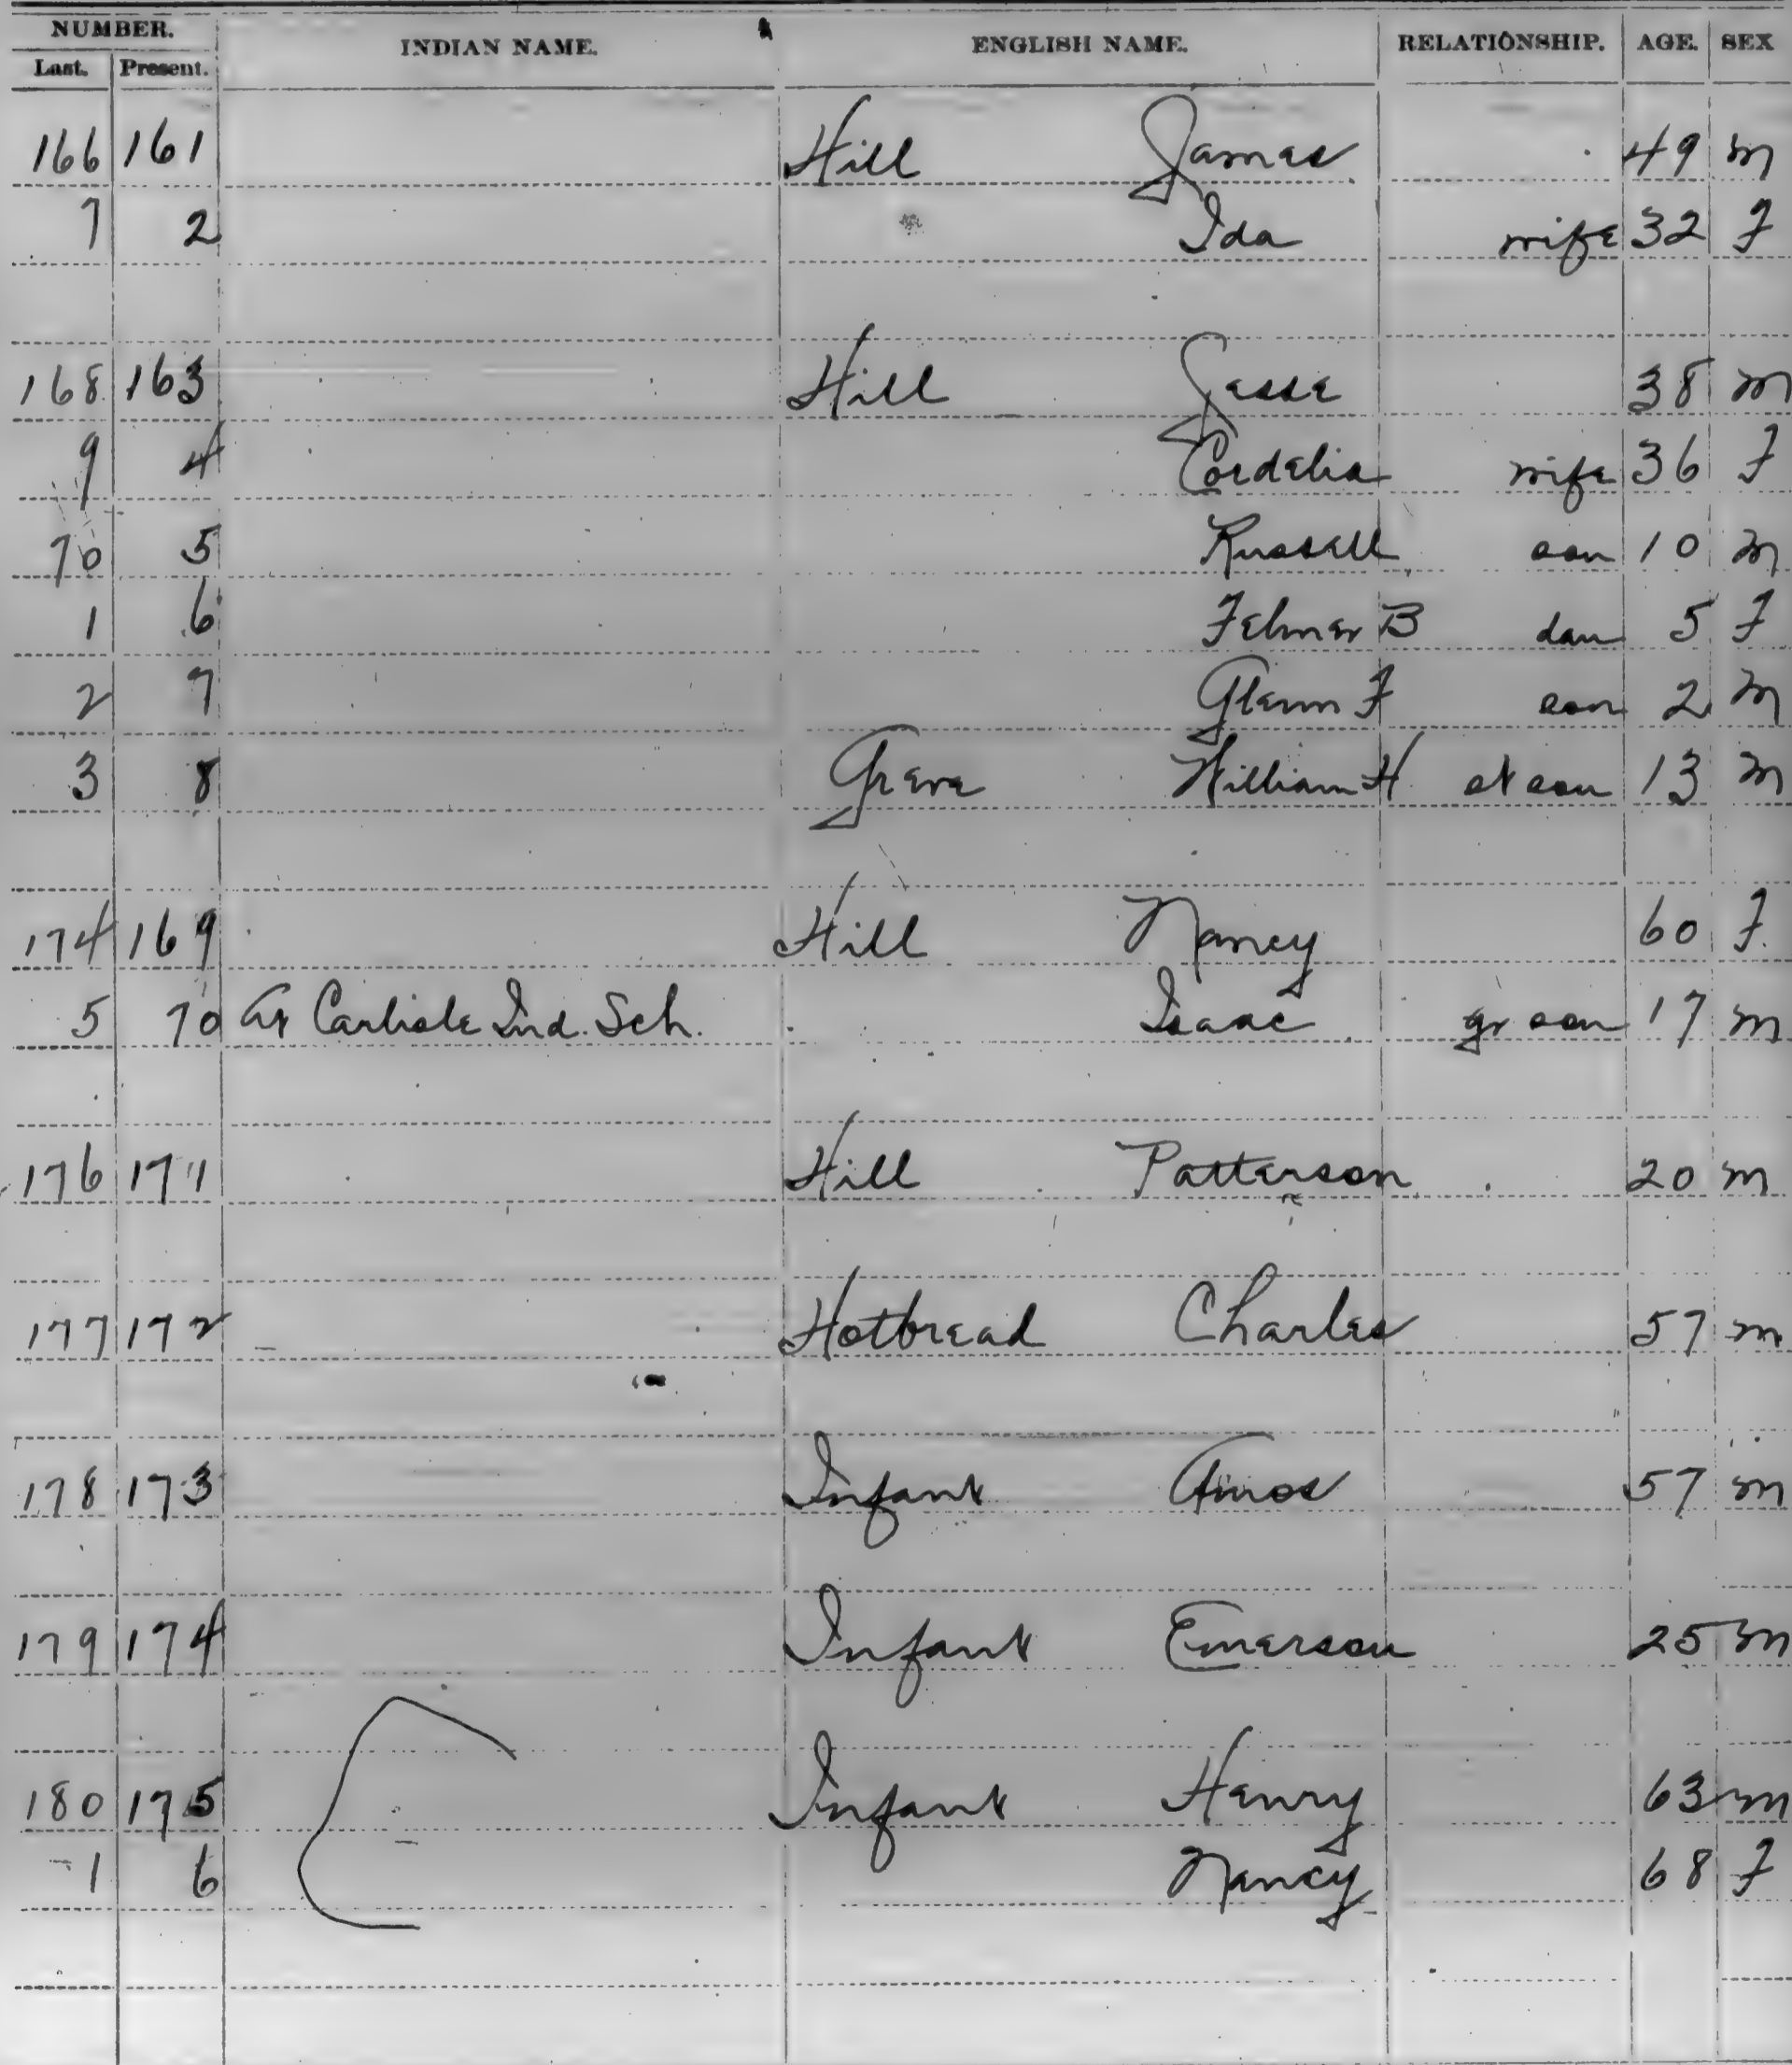 NUMBER. INDIAN NAME. ENGLISH NAME. RELATIONSHIP. AGE. SEX
Last. Present.
166 161 Hill James 49 m
7 2 Ida wife 32 F
168 163 Hill Jesse 38 m
9 4 Cordelia wife 36 F
70 5 Russell son 10 m
1 6 Felmer B dau 5 F
2 7 Glenn F son 2 m
3 8 Greve William H st son 13 m
174 169 Hill Nancy 60 F
5 70 At Carlisle Ind. Sch. Isaac gr son 17 m
176 171 Hill Patterson 20 m
177 172 Hotbread Charles 57 m
178 173 Infant Amos 57 m
179 174 Infant Emerson 25 m
180 175 Infant Henry 63 m
1 6 Nancy 68 F